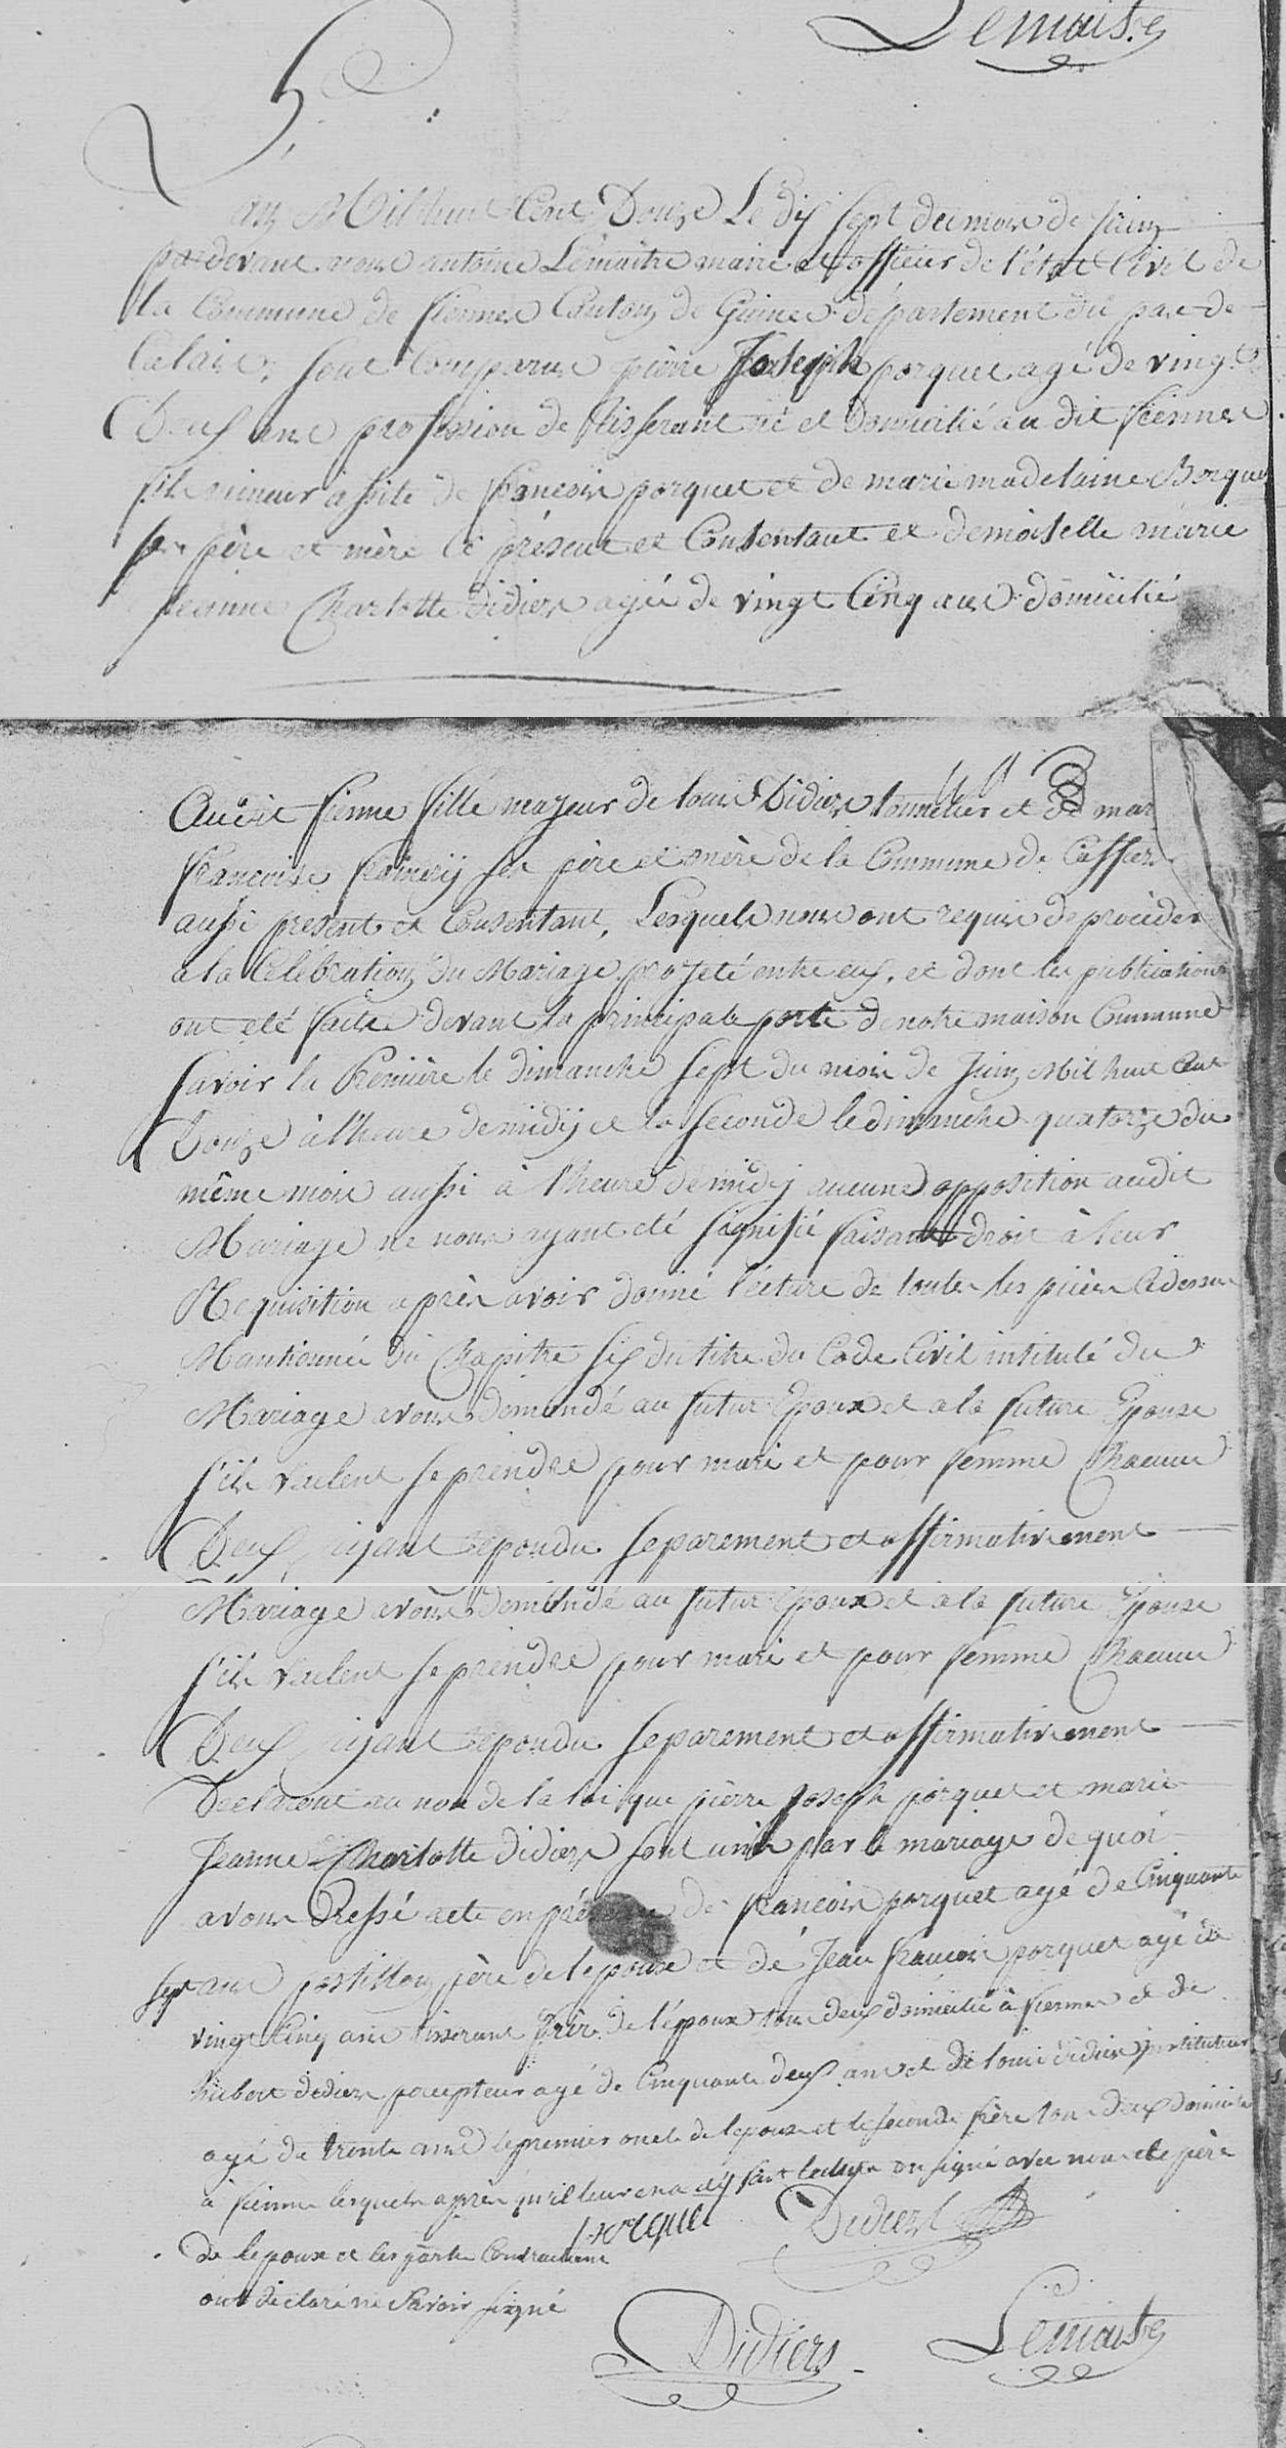 Lemaitre
5
an Mil huit Cent Douze Le dix sept du mois de Juin
pardevant nous antoine Lemaitre maire et officier de l'état Civil de
la Commune de fiennes Canton de Guines département du pas de
Calais, sont Comparus pierre Joseph porquet agé de vingt
Deux ans profession de tisserant né et domicilié au dit fiennes
fils mineur assité de francois porquet et de marie madelaine Borquet
ses père et mère ci présent et Consentant et demoiselle marie
jeanne Charlotte didiers agée de vingt Cinq ans domicilié
Audit fienne fille majeur de louis Didiers tonnelier et de mar
francoise ses père et mère de la Commune de Caffiers
aussi present et Consentant, Lesquels nous ont requis de procéder
a la Célébration du Mariage projeté entre eux, et dont les publications
ont eté faites devant la principale porte de notre maison Commune
savoir la Première le dimanche sept du mois de Juin Mil huit Cent
Douze à l'heure de midij et la seconde le dimanche quatorze du
même mois aussi à l'heure de midij aucune opposition audit
Mariage ne nous ayant eté signifié faisant droit à leur
Requisition après avoir donné lecture de toutes les pièces Cidessus
Mantionnée du Chapitre six du titre du Code Civil intitulé du
Mariage avons demandé au futur Epoux et a la future Epouse
s'ils veulent se prendre pour mari et pour femme Chacun
Deux ayant repondu separement et affirmativement
Mariage avons demandé au futur Epoux et a la future Epouse
s'ils veulent se prendre pour mari et pour femme Chacun
Deux ayant repondu separement et affirmativement
Declarons au nom de la loi que pierre Joseph porquet et marie
Jeanne Charlotte didiers sont unis par le mariage de quoi
avons Dressé acte en présence de francois porquet agé de Cinquante
sept ans postillon père de lepoux et de Jean francois porquet agé de
vingt Cinq ans tisserant frère de l'époux tous deux domicilié à fiennes et de
hubert didiers agé de Cinquante deux ans et de louis didiers instituteur
agé de trente ans le premier oncle de lepouse et le seconde frère tous deux domicilié
à fienne lesquels après qu'il leur en a été fait lecture on signé avec nous et le père
de lepoux et les partie Contractante
ont declaré ne Savoir signé
porquet
Didiers
Didiers
Lemaitre